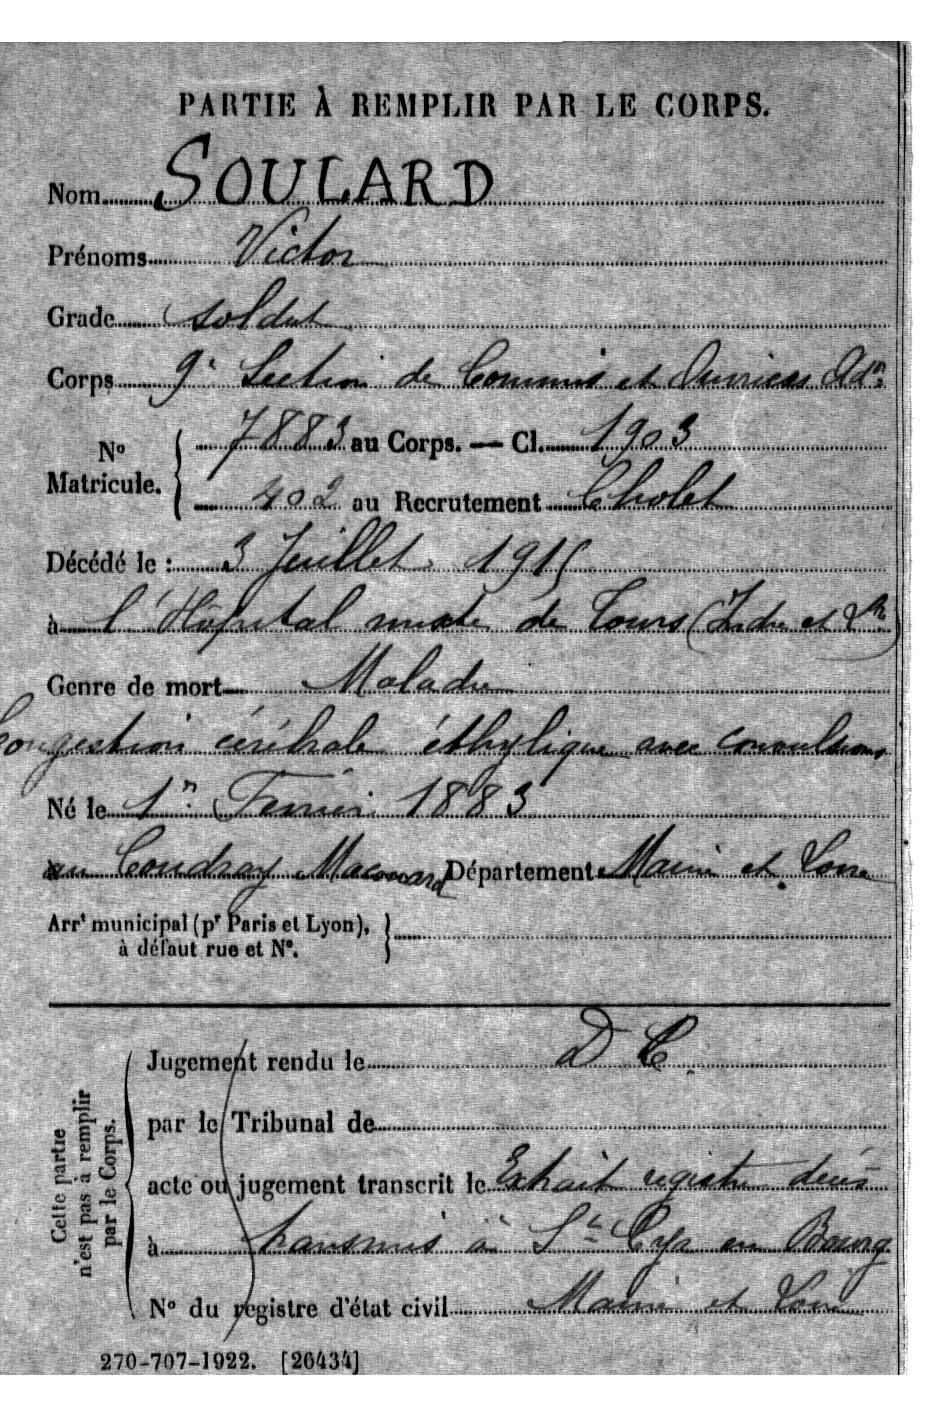 PARTIE À REMPLIR PAR LE CORPS.
Nom SOULARD
Prénoms Victor
Grade soldat
Corps 9e Section de Commis et Ouvriers Adon
No Matricule. { 7883 au Corps. — Cl. 1903
402 au Recrutement Cholet
Décédé le : 3 Juillet 1915
à l'Hôpital mixte de Tours (Indre et Lre)
Genre de mort Maladie
Congestion cérébrale éthylique avec convulsions
Né le 1er Février 1883
au Coudray Macouard Département Maine et Loire
Arrt municipal (pr Paris et Lyon), à défaut rue et No. }
Cette partie n'est pas à remplir par le Corps.
Jugement rendu le D C.
par le Tribunal de
acte ou jugement transcrit le Extrait registre décès
à transmis à St Cyr en Bourg
No du registre d'état civil Maine et Loire
270-707-1922. [26434]